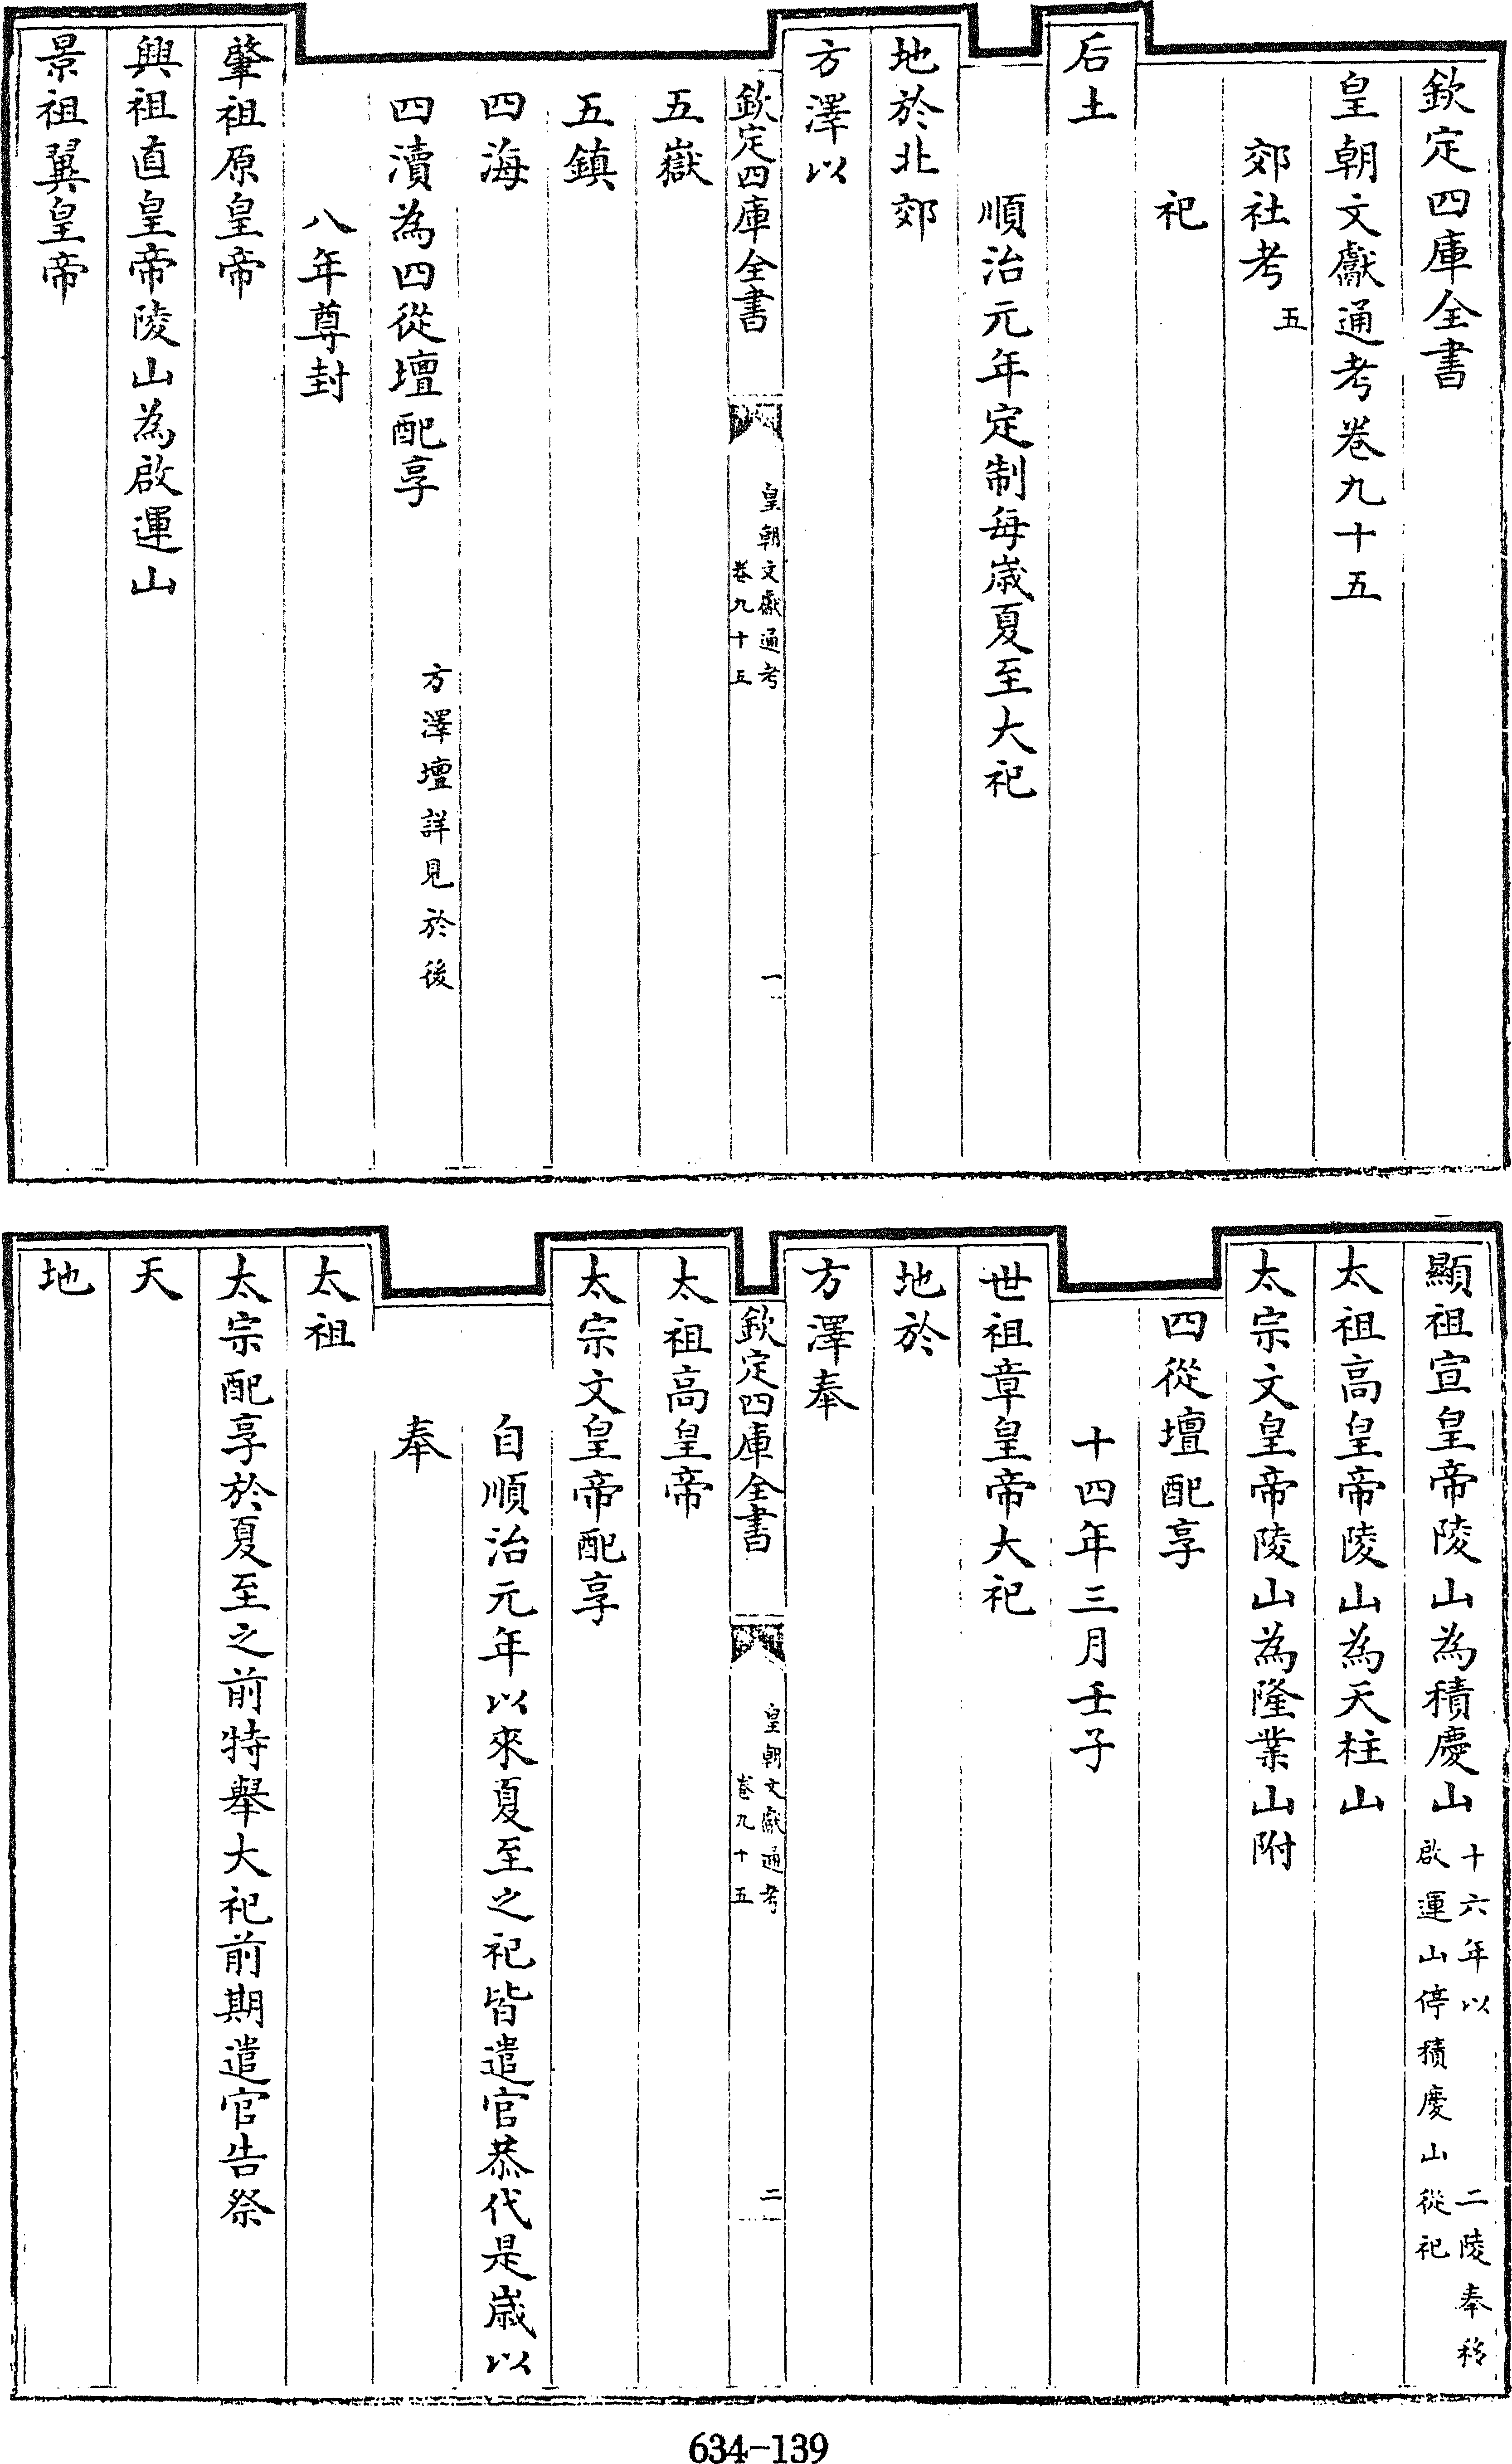 欽定四庫全書
皇朝文獻通考卷九十五
郊社考五
祀
后土
順治元年定制每歲夏至大祀
地於北郊
方澤以
欽定四庫全書
皇朝文獻通考
卷九十五
一
五嶽
五鎮
四海
四瀆為四從壇配享
方澤壇詳見於後
八年尊封
肇祖原皇帝
興祖直皇帝陵山為啟運山
景祖翼皇帝
顯祖宣皇帝陵山為積慶山
十六年以二陵奉移
啟運山停積慶山從祀
太祖高皇帝陵山為天柱山
太宗文皇帝陵山為隆業山附
四從壇配享
十四年三月壬子
世祖章皇帝大祀
地於
方澤奉
欽定四庫全書
皇朝文獻通考
卷九十五
二
太祖高皇帝
太宗文皇帝配享
自順治元年以來夏至之祀皆遣官恭代是歲以
奉
太祖
太宗配享於夏至之前特舉大祀前期遣官告祭
天
地
634-139